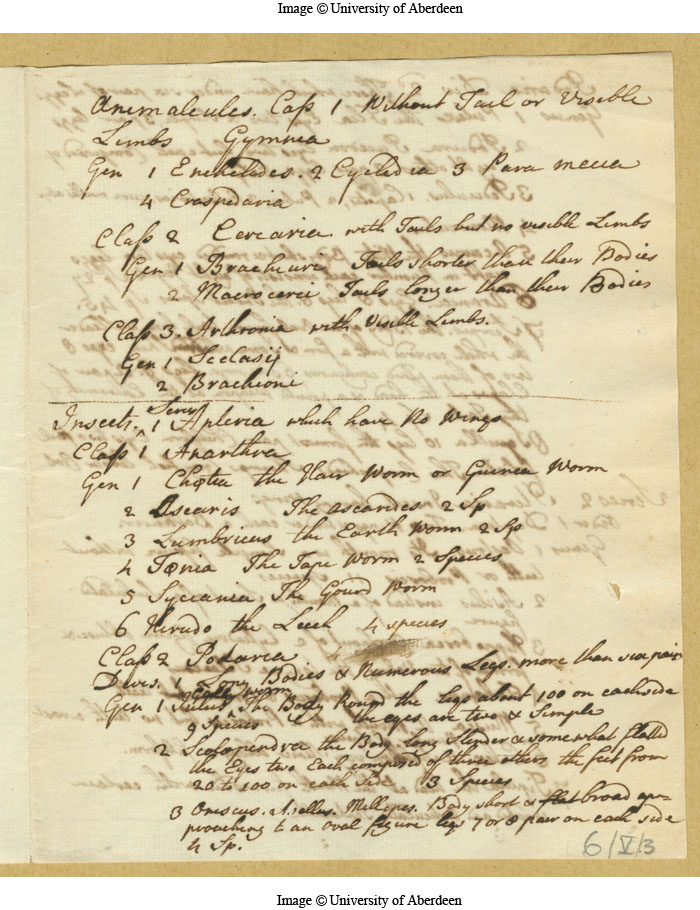 Image © University of Aberdeen
Animalcules. Cass 1 Without Tail or Visible
Limbs Gymnia
Gen 1 Enchelides. 2 Cyclidia 3 Para mecia
4 Craspedaria
Class 2 Cercaria. with Tails but no visible Limbs
Gen 1 Brachiuri Tails shorter than their Bodies
2 Macrocerci Tails longer than their Bodies
Class 3. Arthronia with Visible Limbs.
Gen 1 Scelasij
2 Brachioni
Insects. Series 1 Apteria which have No Wings
Class 1 Anarthra
Gen 1 Chœtia the Hair Worm or Guinea Worm
2 Ascaris The ascarides 2 Sp
3 Lumbricus the Earth Worm 2 Sp
4 Tœnia The Tape Worm 2 Species
5 Syciania The Gourd Worm
6 Hirudo the Leech 4 species
Class 2 Podaria
Divis. 1 Long Bodies & Numerous Legs. more than six pair
Gen 1 Iulus Gally worm The Body Round the legs about 100 on each side
9 Species the eyes are two & Simple
2 Scolopendra the Body long Slender & somewhat flatted
the Eyes two Each composed of three others the feet from
20 to 100 on each Side 3 Species
3 Oniscus. Asellus. Millepes. Body short & flat broad ap-
proaching to an Oval figure legs 7 or 8 pair on each side
4 Sp.
6/V/3
Image © University of Aberdeen